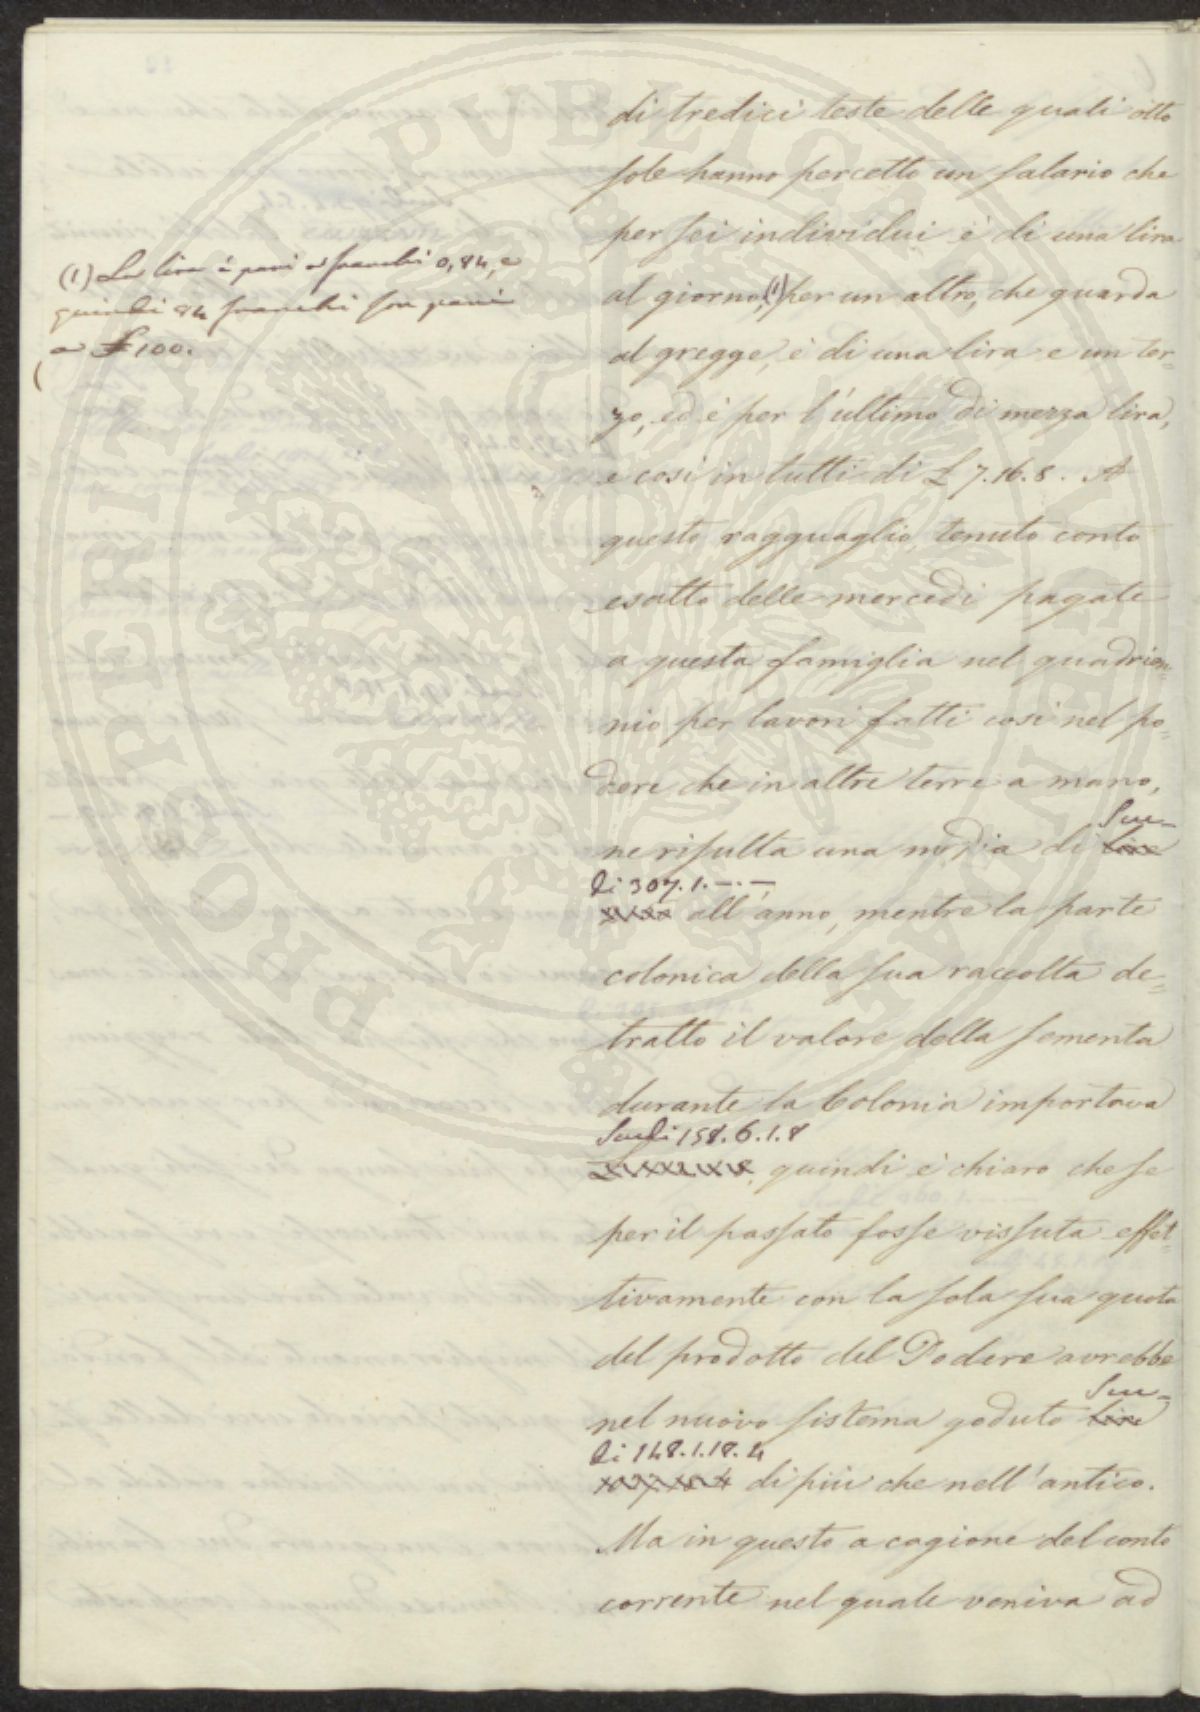 di tredici teste delle quali otto
sole hanno percetto un salario che
per sei individui è di una lira
al giorno,(1) per un altro, che guarda
al gregge, è di una lira e un ter=
zo, ed è per l'ultimo di mezza lira,
e così in tutti di £ 7.16.8. A
questo ragguaglio, tenuto conto
esatto delle mercedi pagate
a questa famiglia nel quadrien=
nio per lavori fatti così nel po=
dere che in altre terre a mano,
ne risulta una media di lire Scu=
di 307.1.—.—,
all'anno, mentre la parte
colonica della sua raccolta de=
tratto il valore della sementa
durante la Colonia importava
Scudi 158.6.1.8
quindi è chiaro che se
per il passato fosse vissuta effet=
tivamente con la sola sua quota
del prodotto del Podere avrebbe
nel nuovo sistema goduto lire Scu=
di 148.1.18.4
di più che nell'antico.
Ma in questo a cagione del conto
corrente nel quale veniva ad
(1) La lira è pari a franchi 0,84, e
quindi 84 franchi son pari
a £ 100.
PROPERITÀ PVBLICA AVGENDA